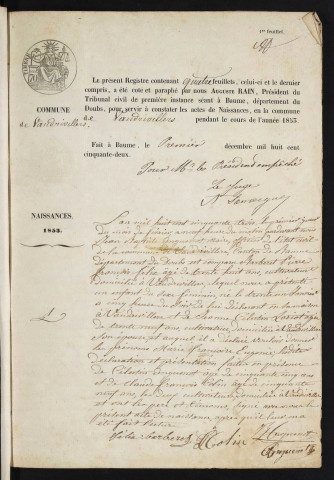 1er feuillet.
Le présent Registre contenant quatre feuillets, celui-ci et le dernier
compris, a été coté et paraphé par nous AUGUSTE RAIN, Président du
Tribunal civil de première instance séant à Baume, département du
Doubs, pour servir à constater les actes de Naissances, en la commune
de Vaudrivillers pendant le cours de l'année 1853.
COMMUNE
de Vaudrivillers
Fait à Baume, le Premier décembre mil huit cent
cinquante-deux.
Pour Mr le Président empêché
Le Juge
NAISSANCES.
1853.
L'an mil huit cent cinquante trois, le premier jour
du mois de février à huit heures du matin pardevant nous
Jean Baptiste maire officier de l'état civil
de la commune de Vaudrivillers, Canton de Baume
département du Doubs est comparu Barberot Pierre
François Félix âgé de trente huit ans, cultivateur
domicilié à Vaudrivillers, lequel nous a présenté
un enfant du sexe féminin, né le
à cinq heures du de lui déclarant en sa maison
à Vaudrivillers et de Jeanne
âgée de trente neuf ans cultivatrice domiciliée à Vaudrivillers
Son épouse et auquel il a déclaré vouloir donner
les prénoms Marie Eugénie, lesdites
déclaration et présentation faites en présence
de âgé de cinquante cinq ans
et de Claude François Colin âgé de cinquante
neuf ans, les deux cultivateurs domiciliés à Vaudrivillers
et ont les père et témoins signé avec nous le
présent acte de naissance, après qu'il leur a
été fait lecture
Félix Barberot Colin